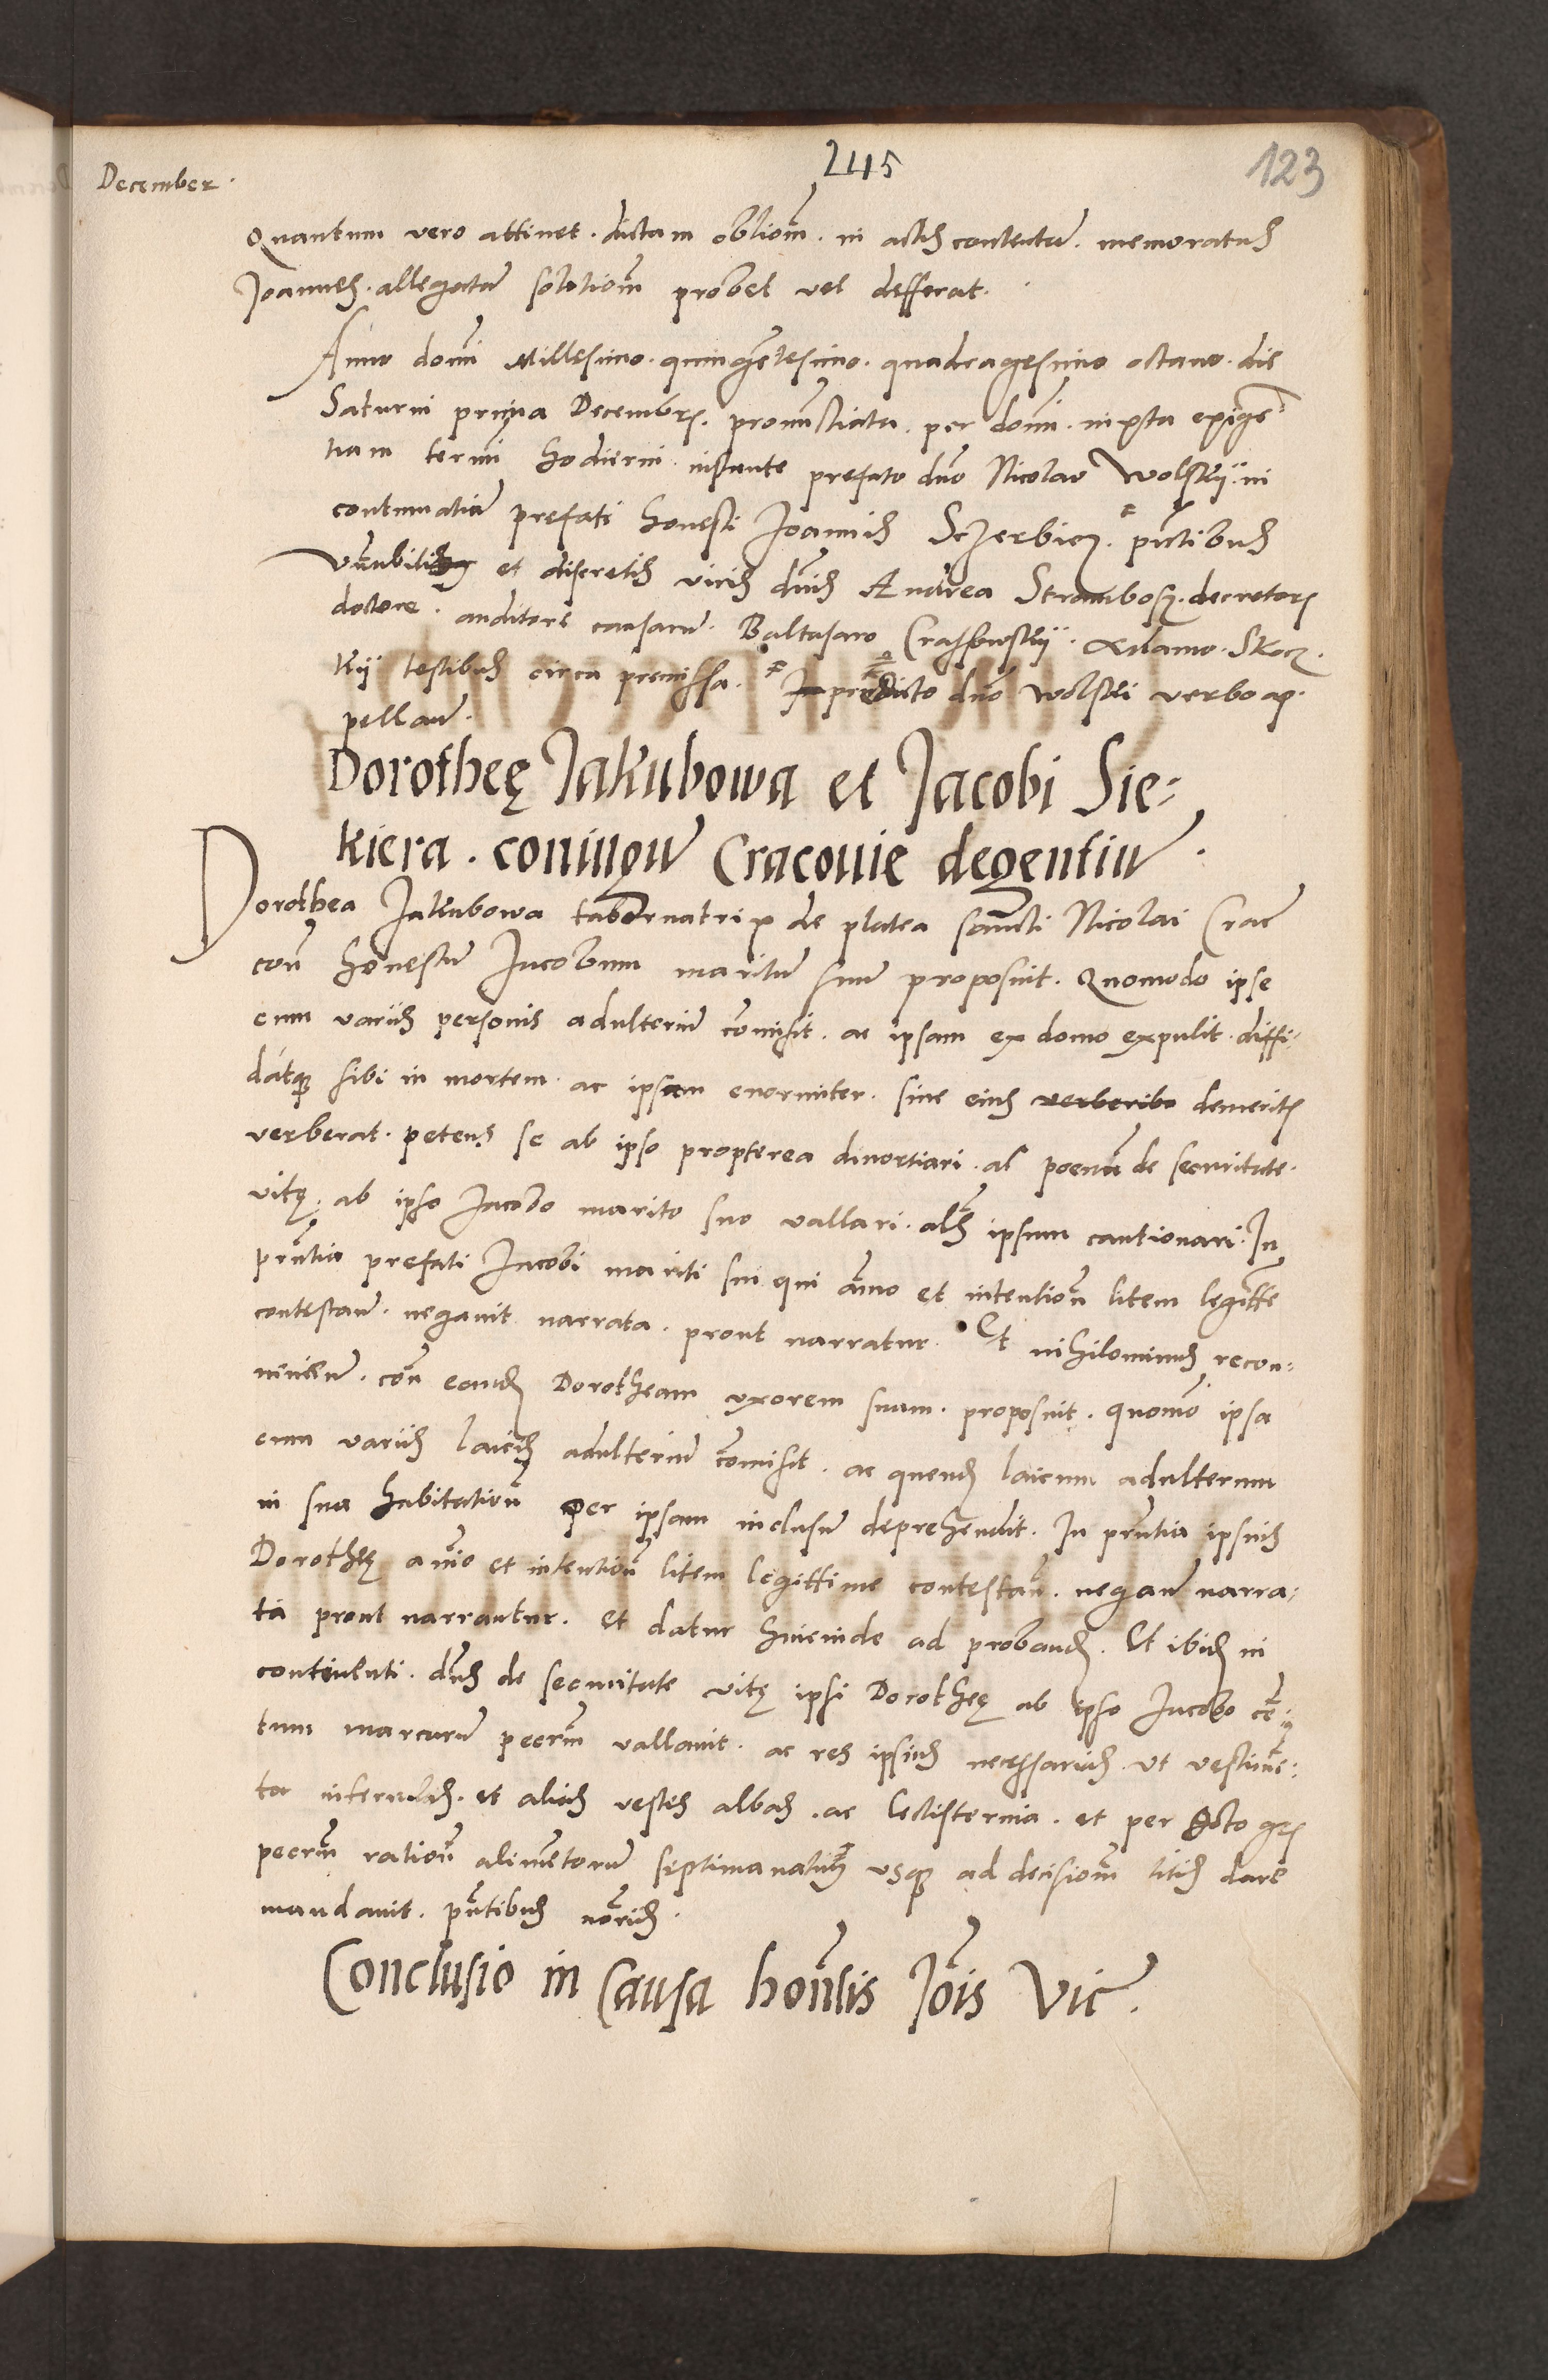 December.
245
123
Quantum vero attinet. dictam obliom̃. in actis contentam̃. memoratus
Joannes. allegatam̃ solutiom̃ probet vel defferat.
Anno domi Millesimo. quingẽtesimo. quadragesimo octavo. die
Saturni prima Decembrꝭ. pronunctiata. per domĩ. iuxta exigẽ
tiam termĩ hodierni instante prefato dño Nicolao Wolskÿ in
contumatiã prefati honesti Joannis Sczerbicz. pñtibus
Vñnbilibus et discretis viris dñis Andrea Strambosz. decretorꝭ
doctore. auditore causarũ. Baltasaro Crassowskÿ. Adamo. Skocz.
kÿ testibus circa premissa. In predicto dño Wolski verbo ap-
pellañ.
Dorotheę Jakubowa et Jacobi Sie-
kiera. coniugũ Cracouie degentiũ.
Dorothea Jakubowa tabernatrix de platea sancti Nicolai Crac̃
coñ honestũ Jacobum maritũ suũ proposuit. Quomodo ipse
cum varÿs personis adulteriũ com̃isit. ac ipsam ex domo expulit. diffi-
datqꝫ sibi in mortem. ac ipsam enormiter. sine eius verberibus demeritꝭ
verberat. petens se ab ipso propterea divortiari. al̃ poenã de securitate.
vitę. ab ipso Jacobo marito suo vallari. als̃ ipsum cautionari. In
pñtia prefati Jacobi mariti sui qui aĩmo et intentioñ litem legittĩe
contestañ. negavit narrata. prout narratur. Et nihilominus recon-
niñen̄. coñ eandꝫ Dorotheam uxorem suam. proposuit. quomõ ipsa
cum varÿs laicis adulteriũ com̃isit. ac quendꝫ laicum adulterum
in sua habitatioñ per ipsam inclusũ deprehendit. In pñtia ipsius
Dorotheę aĩmo et intentioñ litem legittime contestañ. negañ narra-
ta prout narrantur. et datur hincinde ad probandꝫ. Et ibidꝫ in
continenti. dñs de securitate vitę ipsi Dorotheę ab ipso Jacobo cẽ-
tum marcarũ peccm̃ vallavit. ac res ipsius necessarias. ut vestimẽ-
ta interulas. et alias vestes albas. ac lectisternia. et per octo grꝭ
peccm̃ ratioñ alimẽtorũ septimanatim̃ usqꝫ ad decisiom̃ litis dare
mandavit. pñtibus notarÿs.
Conclusio in Causa hoñlis Jois Vic̃.